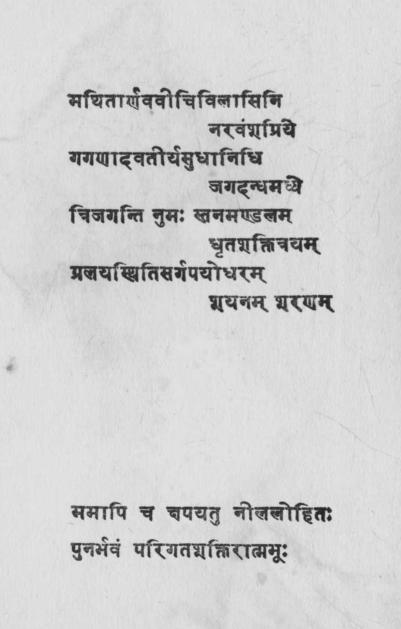 मथितार्णववीचिविलासिनि
नरवंशप्रिये
गगणाद्वतीर्यसुधानिधि
जगद्न्धमध्ये
चिजगन्ति नुमः स्तनमण्डलम्
धृतशक्तिचयम्
प्रलयस्थितिसर्गपयोधरम्
शयनम् शरणम्
ममापि च क्षपयतु नीललोहितः
पुनर्भवं परिगतशक्तिरात्मभूः